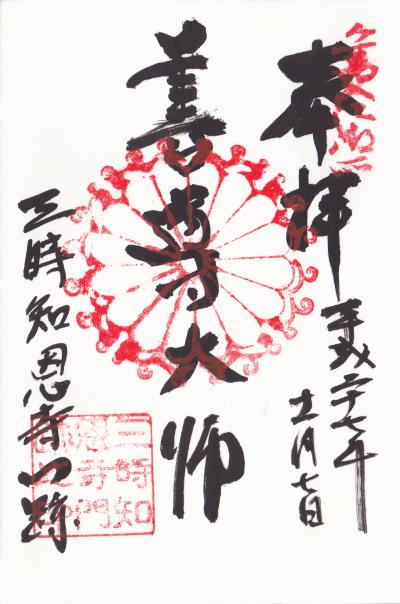 奉拝
平成二十七年
十一月七日
善導大師
三時知恩寺門跡
三時知
恩寺門